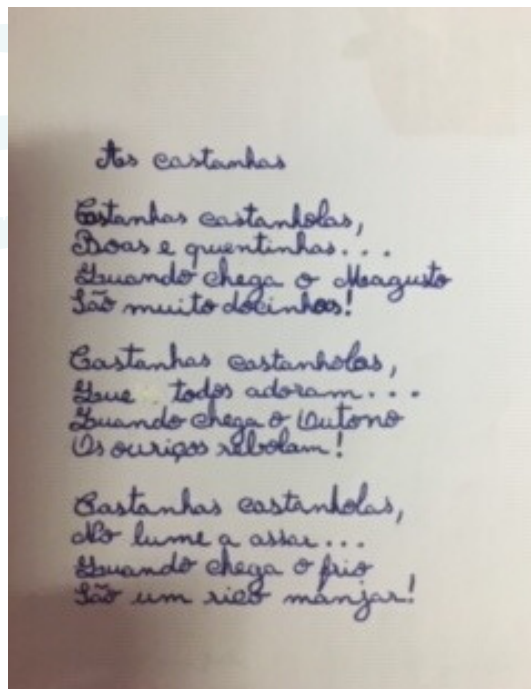 As castanhas
Castanhas castanholas,
Boas e quentinhas...
Quando chega o Magusto
São muito docinhas!
Castanhas castanholas,
Que todos adoram...
Quando chega o Outono
Os ouriços rebolam!
Castanhas castanholas,
No lume a assar...
Quando chega o frio
São um rico manjar!